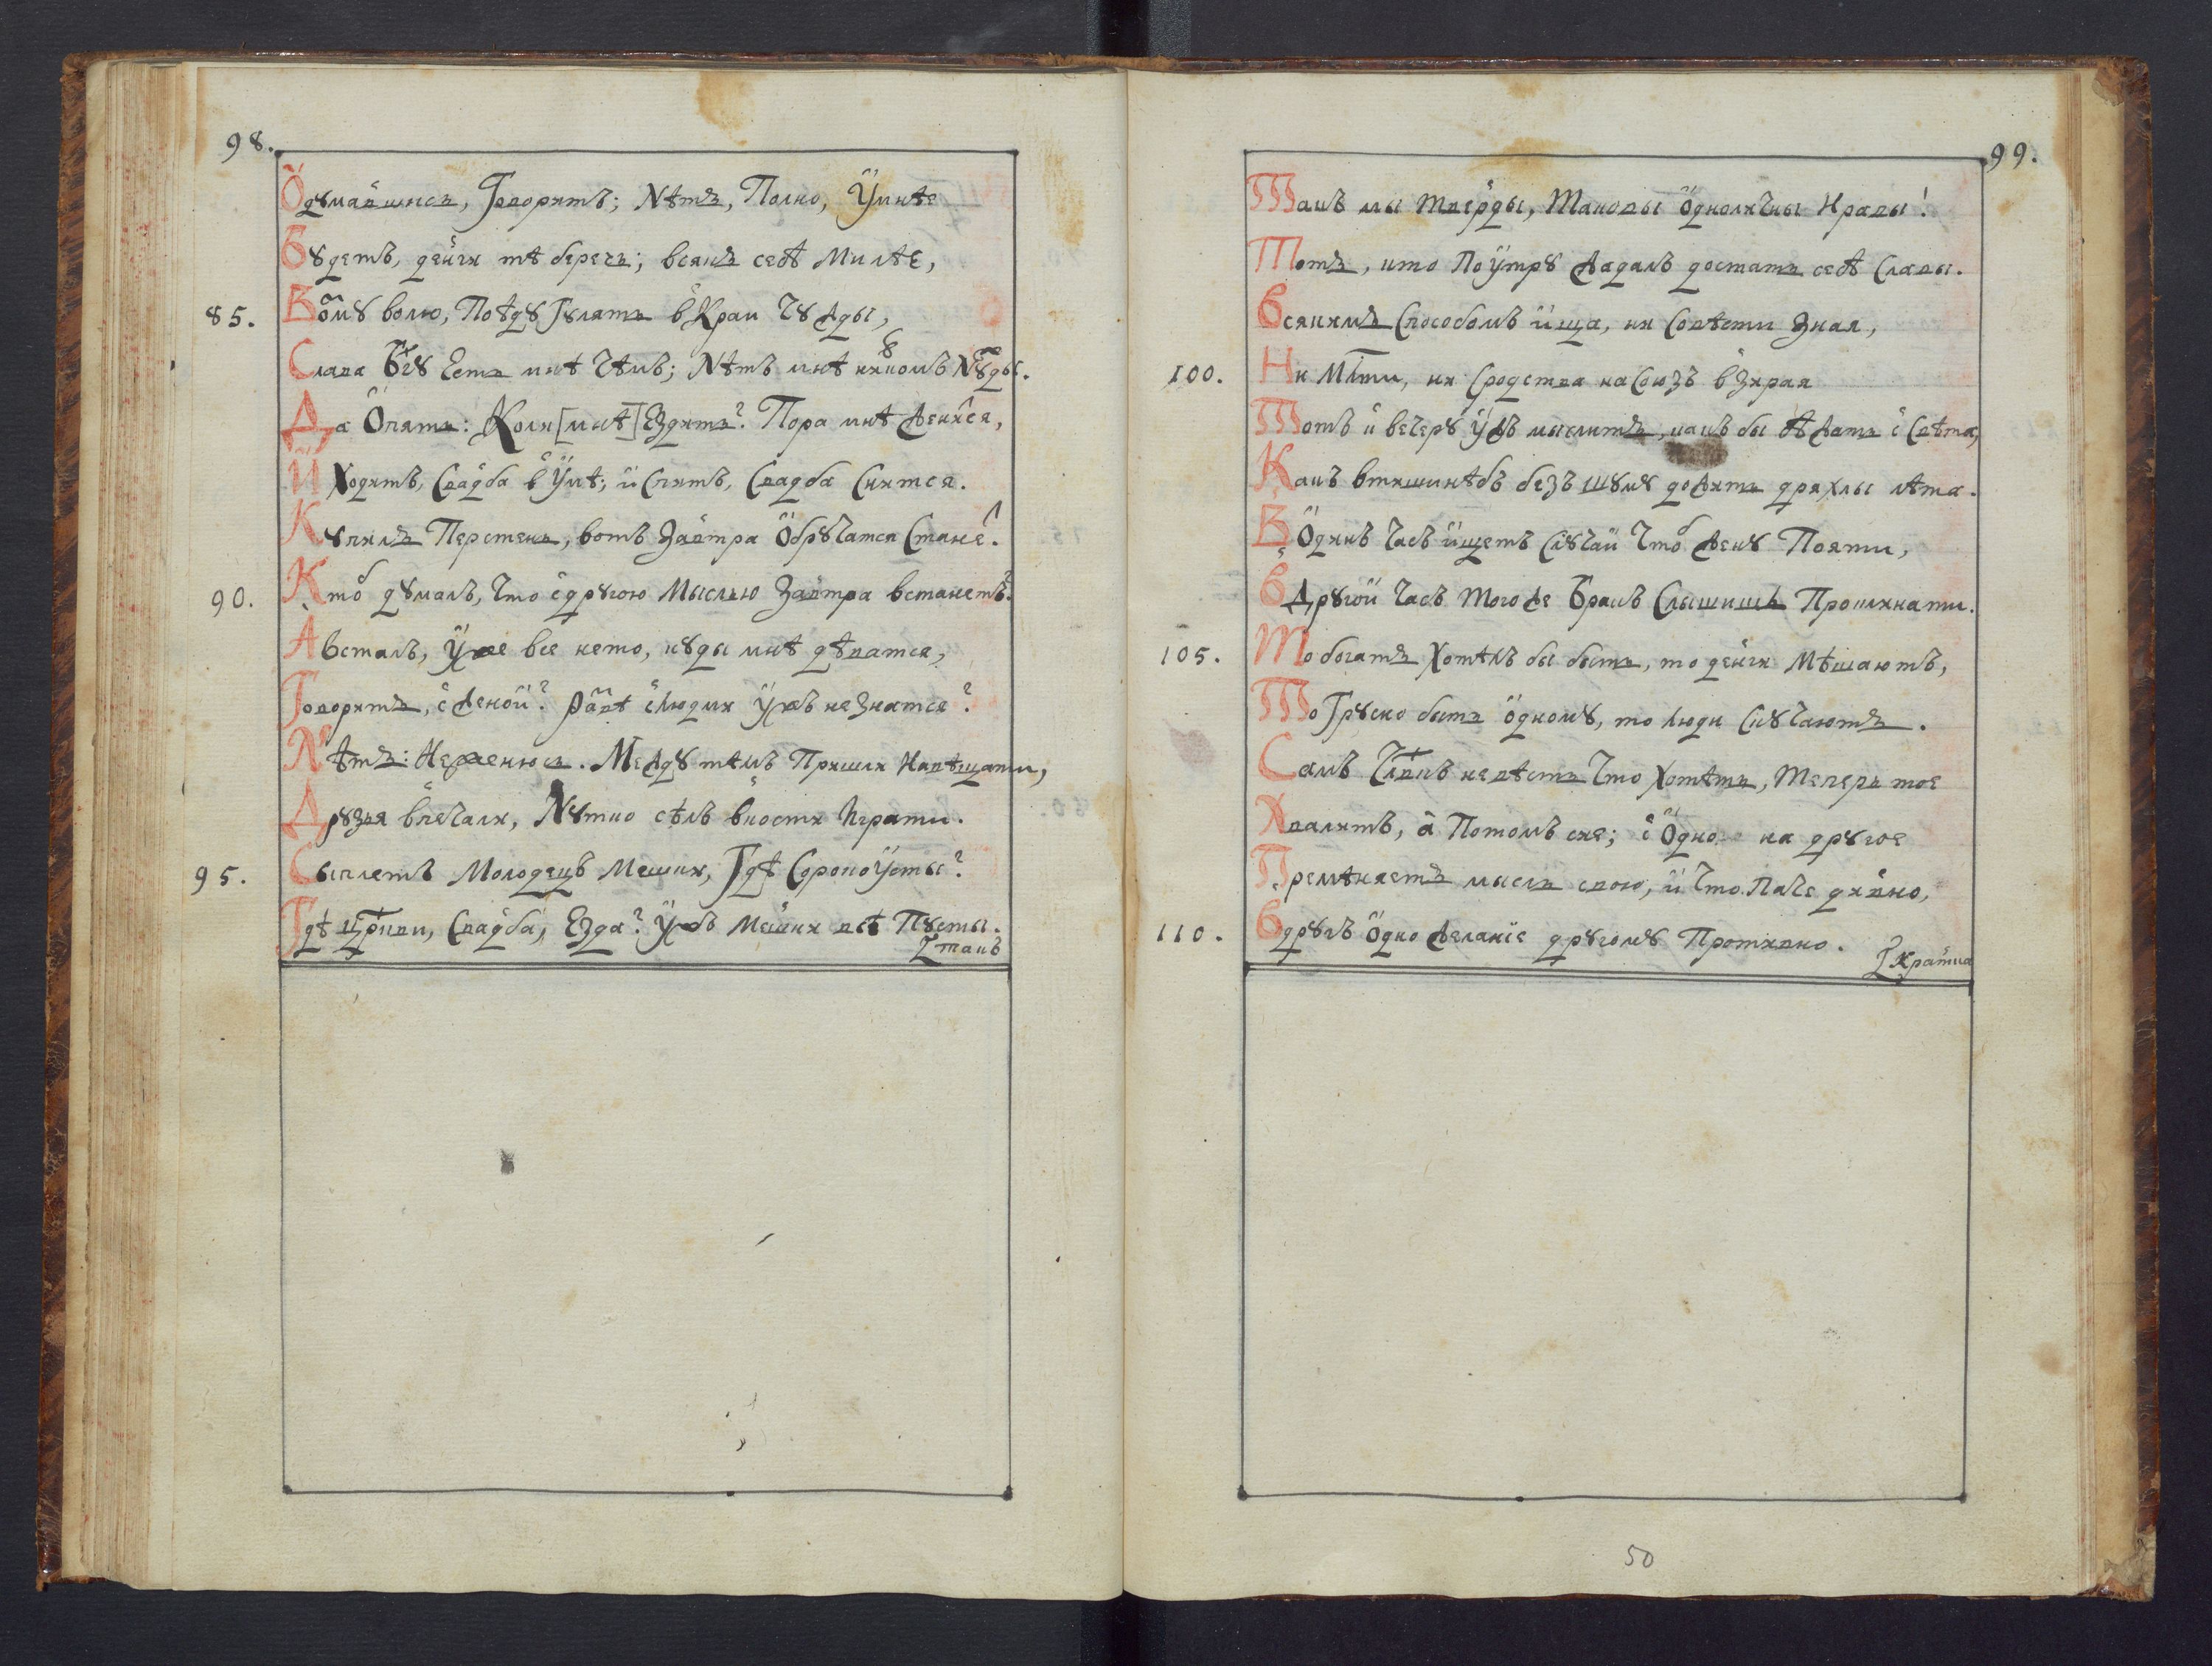 98.
Ѻдꙋмавшись, Говоритъ; Nѣтъ, Полно, Ꙋмнѣе
Бꙋдетъ, денги тѣ беречь; всякъ себѣ Милѣе,
85. Вомꙋ волю, Поѣдꙋ Гꙋлять в Краи Чꙋжды,
Слава Бг҃ꙋ Есть мнѣ Чѣмъ; Nѣтъ мнѣ никомъ Nꙋжды.
Да Опять: Коли [мнѣ] Ездить? Пора мнѣ женится,
И Ходитъ, Свадба в Ꙋмѣ; и Спитъ, Свадба Снится.
Кꙋпилъ Перстень, вотъ Завтра Обрꙋчатся Станет.
90. Кто дꙋмалъ, Что с дрꙋгою Мыслью Завтра встанетъ.
А всталъ, Ꙋже все нето, кꙋды мнѣ дѣватся,
Говоритъ, с женой? развѣ с людми Ꙋжъ не Знатся?
Nѣтъ: Не женюсь. Междꙋ тѣмъ Пришли Навѣщати,
Дрꙋзья в печали, Nꙋтко сѣлъ в кости Играти.
95. Сыплетъ Молодецъ Мешки, Гдѣ Сорокоꙋсты?
Гдѣ Цр҃кви, Свадба, Езда? Ꙋжъ Мешки всѣ Пꙋсты.
такъ
99.
Такъ мы твѣрды, таковы Одноличны Нравы!
Тотъ, кто Поꙋтрꙋ жадалъ достать себѣ Славы.
Всякимъ Способомъ ища, ни Совѣсти Зная,
100. Ни Мл҃ти, ни Сродства на Союзъ в Зирая
Тотъ и вечерꙋ Ꙋжъ мыслитъ, какъ бы бѣжать с Свѣта,
Какъ втишинѣбъ безъ шꙋмꙋ дожить дряхлы лѣта.
В Одинъ Часъ ищетъ Слꙋчай Чтоб женꙋ Пояти,
В Дрꙋгой Часъ того же Бракъ Слышишь Проклинати.
105. То богатъ Хотѣлъ бы быть, то денги Мѣшаютъ,
То Грꙋсно быть одномꙋ, то люди Скꙋчаютъ.
Самъ Члв҃къ невѣсть Что Хотѣть, Теперь тое
Хвалитъ, а Потомъ сие; с Одно на дрꙋгое
Премѣняетъ мысль свою, и Что Паче дивно,
110. В дрꙋгъ Одно желанїе дрꙋгомꙋ Противно.
Кратка
50